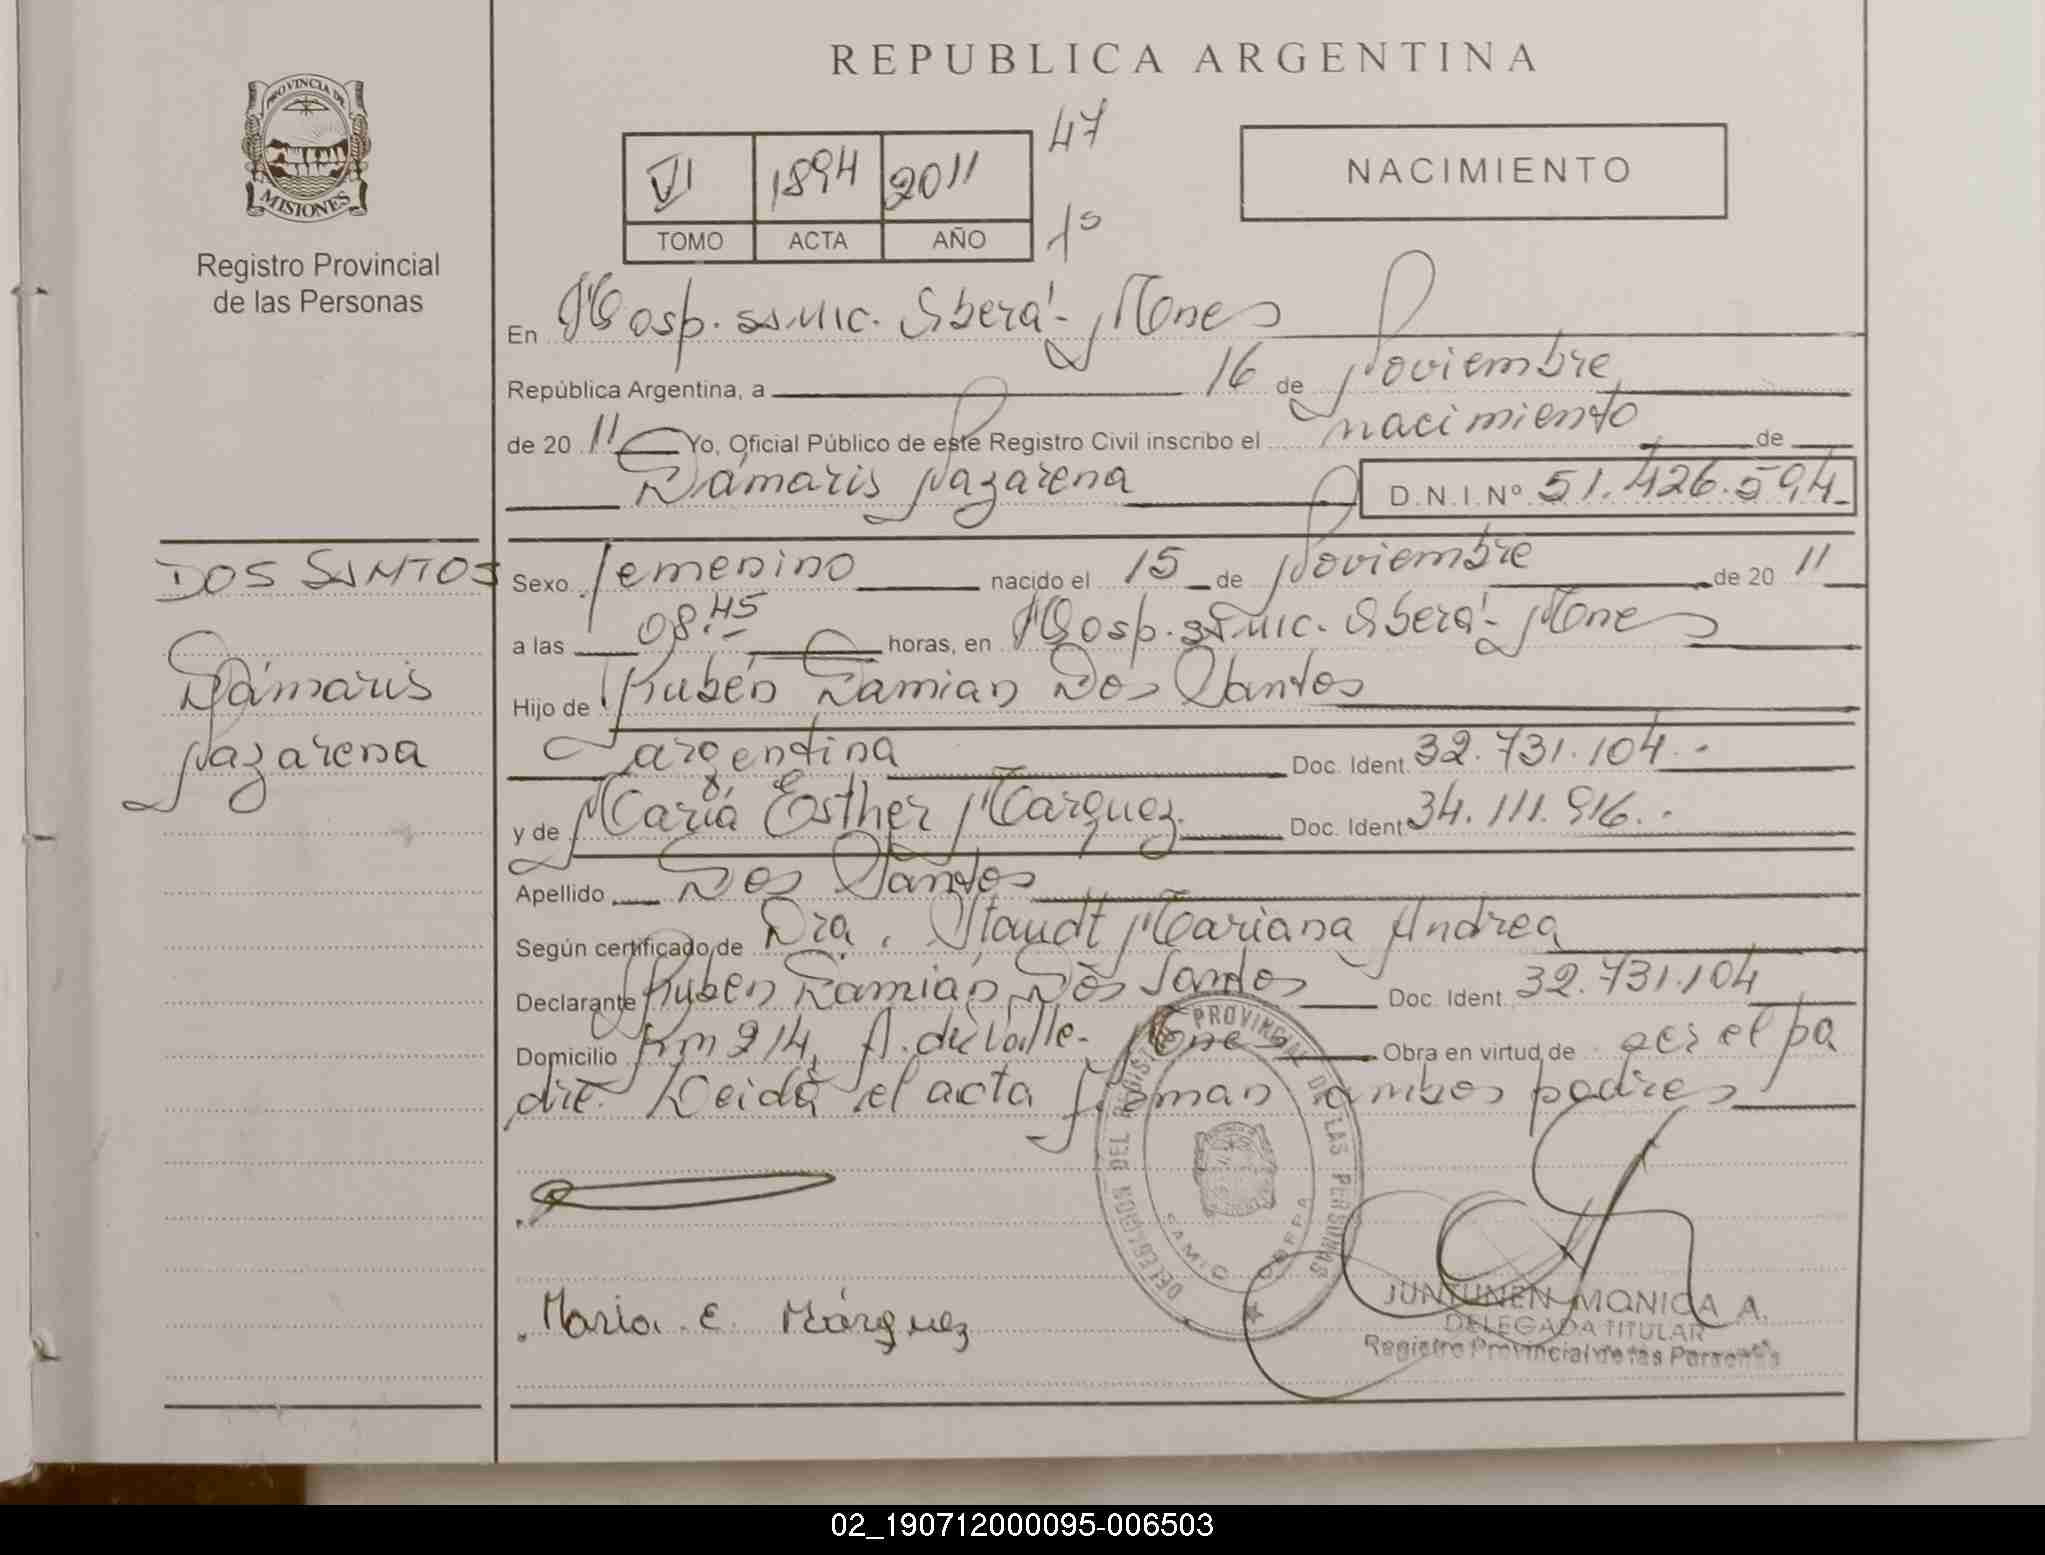 REPUBLICA ARGENTINA
PROVINCIA DE
MISIONES
Registro Provincial
de las Personas
VI 1894 2011
TOMO ACTA AÑO
47
1º
NACIMIENTO
En Hosp. SAMIC. Oberá - Mnes
República Argentina, a 16 de Noviembre
de 20 11 Yo, Oficial Público de este Registro Civil inscribo el nacimiento de
Dámaris Nazarena D.N.I.Nº 51.426.594
DOS SANTOS
Dámaris
Nazarena
Sexo femenino nacido el 15 de Noviembre de 20 11
a las 08:45 horas, en Hosp. SAMIC. Oberá - Mnes
Hijo de Rubén Damian Dos Santos
argentina Doc. Ident. 32.731.104.-
y de María Esther Marquez Doc. Ident 34.111.916.-
Apellido Dos Santos
Según certificado de Dra. Staudt Mariana Andrea
Declarante Rubén Damián Dos Santos Doc. Ident. 32.731.104
Domicilio Km 214, A. del Valle - Mnes Obra en virtud de ser el pa
dre. Leida el acta firman ambos padres
DELEGACION DEL REGISTRO PROVINCIAL DE LAS PERSONAS
Maria E. Márquez
JUNTUNEN MONICA A.
DELEGADA TITULAR
Registro Provincial de las Personas
02_190712000095-006503